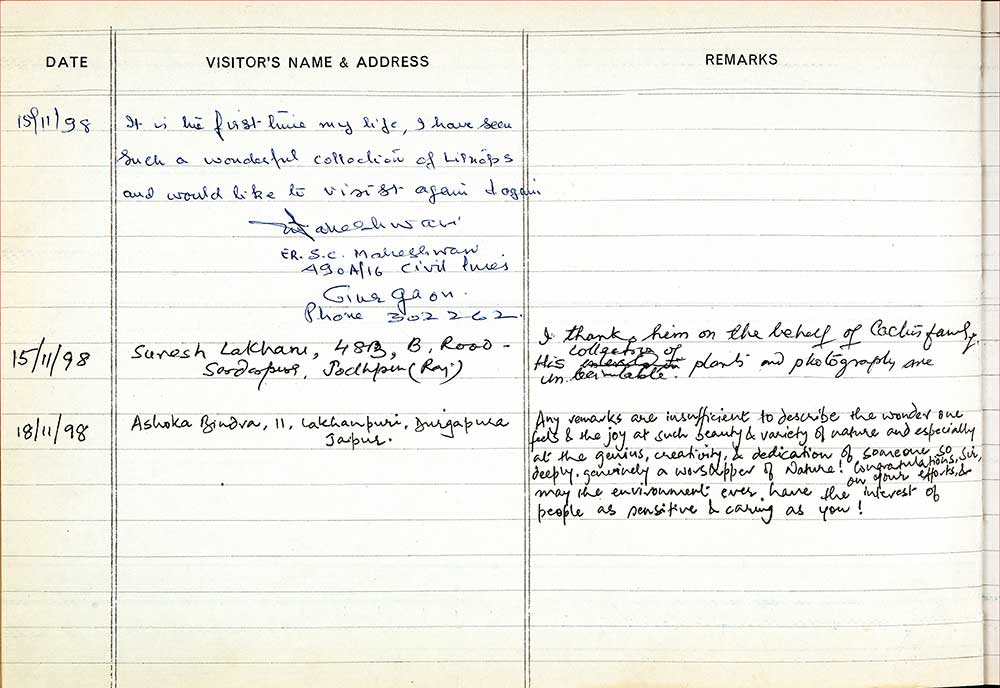 DATE
VISITOR'S NAME & ADDRESS
REMARKS
15/11/98
It is the first time my life, I have seen
such a wonderful collection of
and would like to visist again & again
Maheshwari
ER. S.C. Maheshwari
490A/16 Civil lines
Gurgaon.
Phone 302262.
15/11/98
Suresh Lakhani, 48, B, Road -
Sardarpura, Jodhpur (Raj)
I thank him on the behalf of Cactus family.
His collection of plants and photography are
un
18/11/98
Ashoka Bindra, 11, Lakhanpuri, Durgapura
Jaipur.
Any remarks are insufficient to describe the wonder one
feels & the joy at such beauty & variety of nature and especially
at the genius, creativity, & dedication of someone so
deeply, genuinely a worshipper of Nature! Congratulations, Sir,
on your efforts, &
may the environment ever have the interest of
people as sensitive & caring as you!